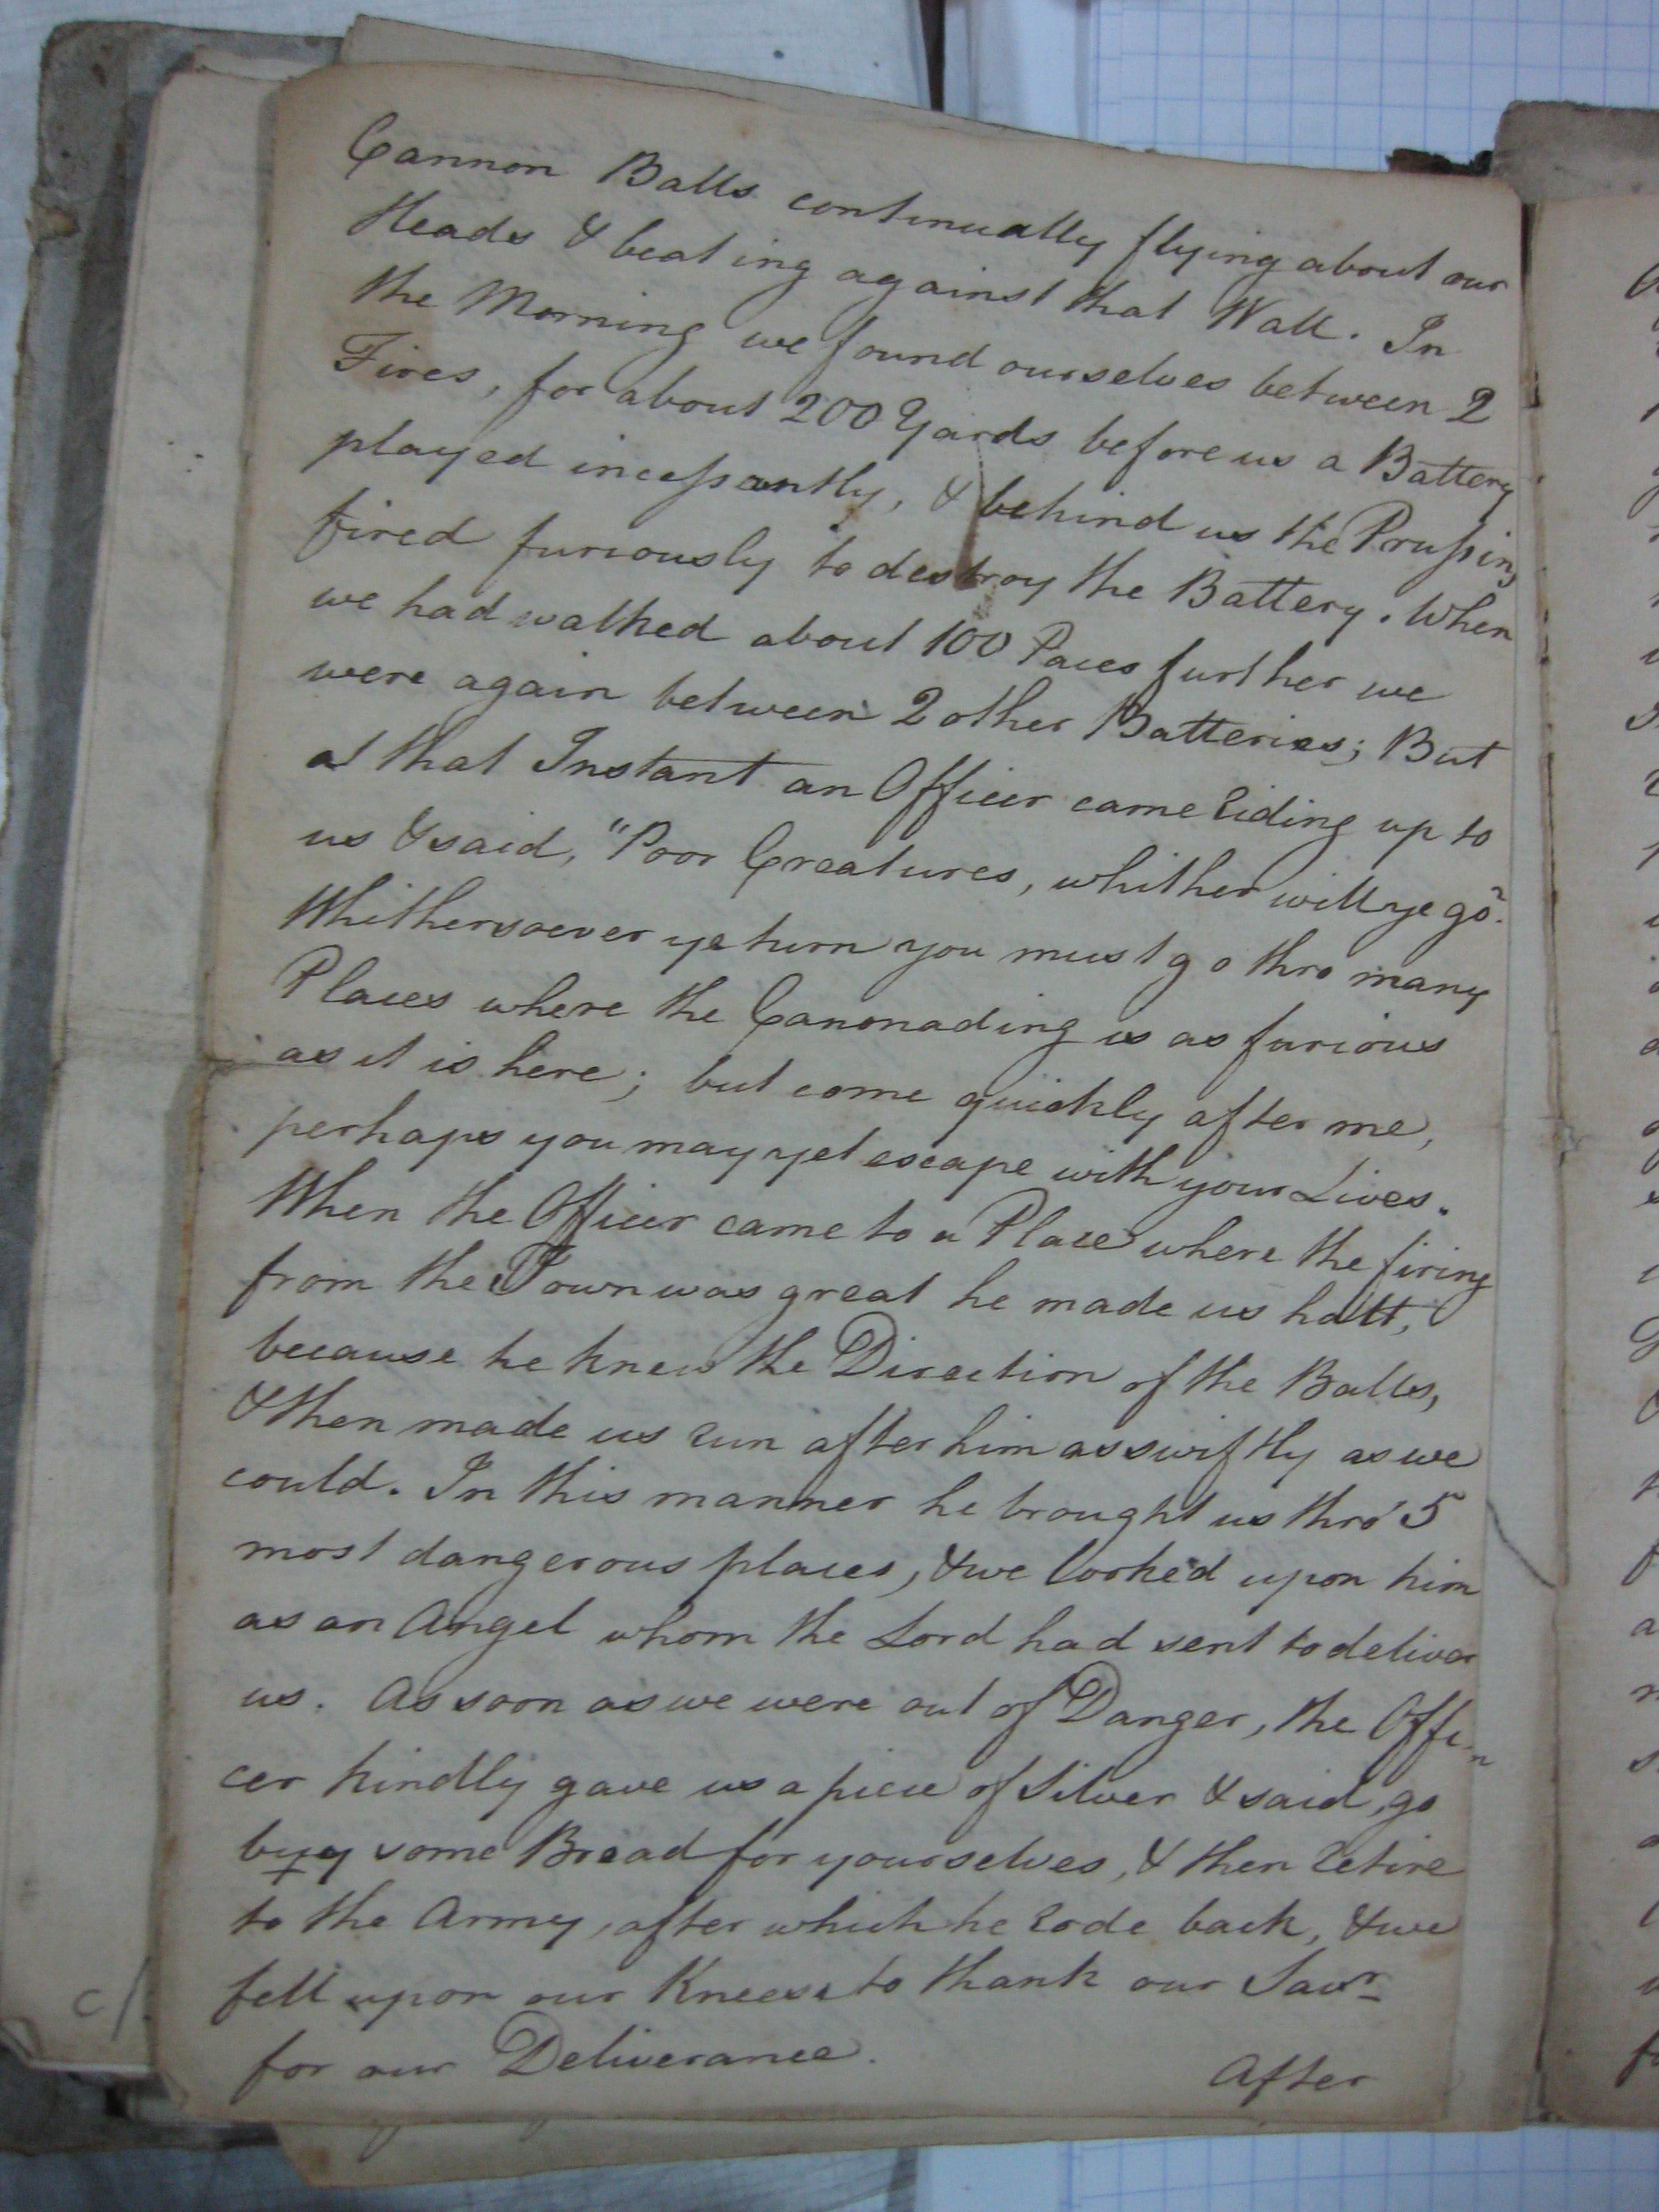 Cannon Balls continually flying about our
Heads & beating against that Wall. In
the Morning we found ourselves between 2
Fires, for about 200 Yards before us a Battery
played incessantly, & behind us the Prussins
fired furiously to destroy the Battery. When
we had walked about 100 Paces further we
were again between 2 other Batteries; But
at that Instant an Officer came riding up to
us & said, "Poor Creatures, whither will ye go?
Whithersoever ye turn you must go thro many
Places where the Canonading is as furious
as it is here; but come quickly after me,
perhaps you may yet escape with your Lives.
When the Officer came to a Place where the firing
from the Town was great he made us halt,
because he knew the Direction of the Balls,
& then made us run after him as swiftly as we
could. In this manner he brought us thro' 5
most dangerous places, & we looked upon him
as an Angel whom the Lord had sent to deliver
us. As soon as we were out of Danger, the Offi-
cer kindly gave us a piece of Silver & said, go
buy some Bread for yourselves, & then retire
to the Army, after which he rode back, & we
fell upon our Knees to thank our Savr
for our Deliverance.
After
c/